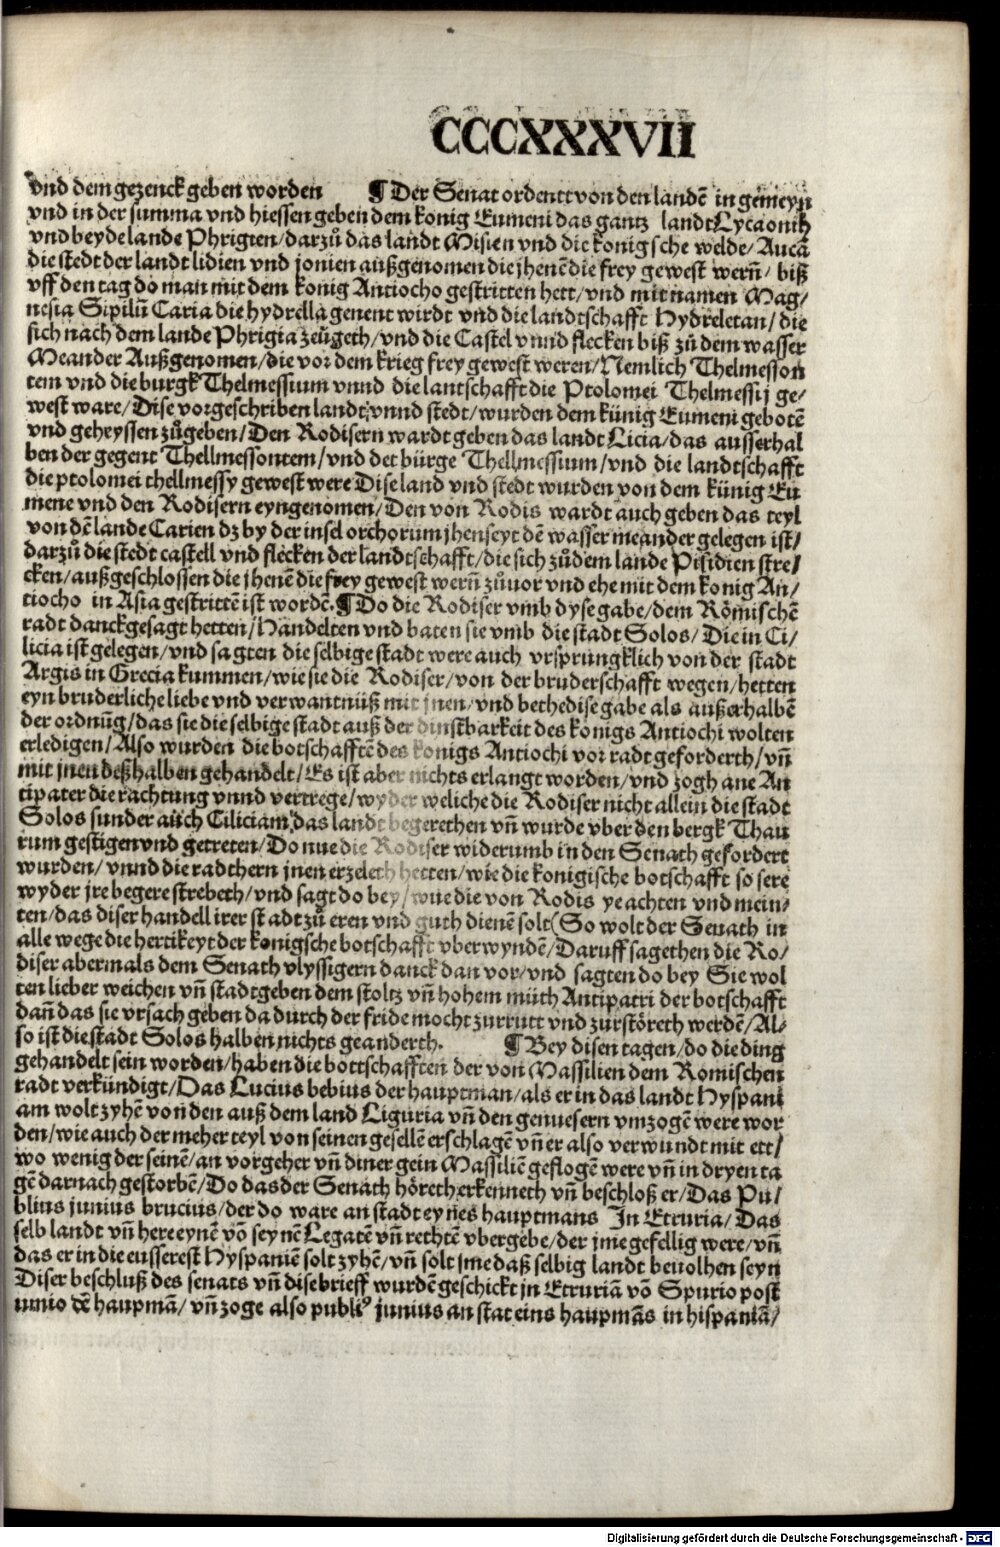 CCCXXXVII
vnd dem gezenck geben worden ¶ Der Senat ordentt von den landē in gemeyn
vnd in der summa vnd hiessen geben dem konig Eumeni das gantz landt Lycaonih
vnd beyde lande Phrigien/darzů das landt Misien vnd die konigsche welde/ Aucā
die stedt der landt lidien vnd jonien außgenomen die jhenē die frey gewest wern̄/ biß
vff den tag do man mit dem konig Antiocho gestritten hett/vnd mit namen Mag/
nesia Sipilū Caria die hydrella genent wirdt vnd die landtschafft Hydreletan/ die
sich nach dem lande Phrigia zeůgeth/vnd die Castel vnnd flecken biß zů dem wasser
Meander Außgenomen/die vor dem krieg frey gewest weren/Nemlich Thelmesson
tem vnd die burgk Thelmessium vnnd die lantschafft die Ptolomei Thelmessij ge/
west ware/Dise vorgeschriben landt vnnd stedt/wurden dem künig Eumeni gebotē
vnd geheyssen zůgeben/Den Rodisern wardt geben das landt Licia/das ausserhal
ben der gegent Thellmessontem/vnd der bürge Thellmessium/vnd die landtschafft
die ptolomei thellmessy gewest were Dise land vnd stedt wurden von dem künig Eu
mene vnd den Rodisern eyngenomen/Den von Rodis wardt auch geben das teyl
von dē lande Carien dz by der insel orchorum jhenseyt dē wasser meander gelegen ist/
darzů die stedt castell vnd flecken der landtschafft/die sich zůdem lande Pisidien stre/
cken/außgeschlossen die jhenē die frey gewest wern̄ zůuor vnd ehe mit dem konig An/
tiocho in Asia gestrittē ist wordē.¶ Do die Rodiser vmb dyse gabe/dem Römischē
radt danckgesagt hetten/Handelten vnd baten sie vmb die stadt Solos/Die in Ci/
licia ist gelegen/vnd sagten die selbige stadt were auch vrsprungklich von der stadt
Argis in Grecia kummen/wie sie die Rodiser/von der bruderschafft wegen/hetten
eyn bruderliche liebe vnd verwantnüß mit jnen/vnd bethedise gabe als außerhalbē
der ordnūg/das sie die selbige stadt auß der dinstbarkeit des konigs Antiochi wolten
erledigen/Also wurden die botschafftē des konigs Antiochi vor radt geforderth/vn̄
mit jnen deßhalben gehandelt/Es ist aber nichts erlangt worden/vnd zogh ane An
tipater die rachtung vnnd vertrege/wyder weliche die Rodiser nicht allein die stadt
Solos sunder auch Ciliciam das landt begerethen vn̄ wurde vber den bergk Thau
rum gestigen vnd getreten/Do nue die Rodiser widerumb in den Senath gefordert
wurden/vnnd die radthern jnen erzeleth hetten/wie die konigische botschafft so sere
wyder jre begere strebeth/vnd sagt do bey/wue die von Rodis ye achten vnd mein/
ten/das diser handell irer stadt zů eren vnd guth dienē solt(So wolt der Senath in
alle wege die hertikeyt der konigsche botschafft vberwyndē/Daruff sagethen die Ro/
diser abermals dem Senath vlyssigern danck dan vor/vnd sagten do bey Sie wol
ten lieber weichen vn̄ stadtgeben dem stoltz vn̄ hohem můth Antipatri der botschafft
dan̄ das sie vrsach geben da durch der fride mocht zurrutt vnd zurstöreth werdē/Al/
so ist die stadt Solos halben nichts geanderth. ¶ Bey disen tagen/do die ding
gehandelt sein worden/haben die bottschafften der von Massilien dem Romischen
radt verkündigt/Das Lucius bebius der hauptman/als er in das landt Hyspani
am wolt zyhē von den auß dem land Liguria vn̄ den genuesern vmzogē were wor
den/wie auch der meher teyl von seinen gesellē erschlagē vn̄ er also verwundt mit ett/
wo wenig der seinē/an vorgeher vn̄ diner gein Massiliē geflogē were vn̄ in dryen ta
gē darnach gestorbē/Do das der Senath höreth erkenneth vn̄ beschloß er/Das Pu/
blius junius brucius/der do ware an stadt eynes hauptmans In Etruria/Das
selb landt vn̄ here eynē vō seynē Legatē vn̄ rechtē vbergebe/der jme gefellig were/vn̄
das er in die eusserest Hyspaniē solt zyhē/vn̄ solt jme daß selbig landt beuolhen seyn
Diser beschluß des senats vn̄ dise brieff wurdē geschickt jn Etruriā vō Spurio post
umio dē haupmā/ vn̄ zoge also publiꝰ junius an stat eins haupmās in hispaniā/
Digitalisierung gefördert durch die Deutsche Forschungsgemeinschaft - DFG